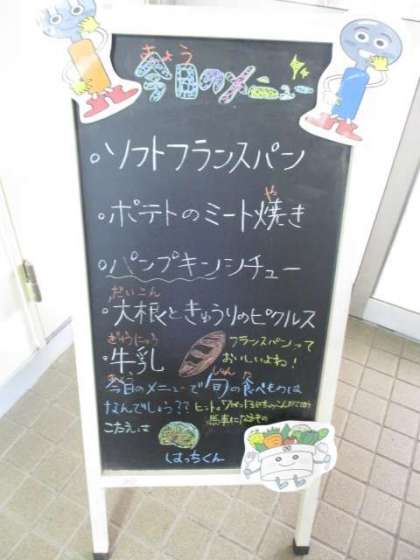 きょう
今日のメニュー
・ソフトフランスパン
・ポテトのミート焼き
や
・パンプキンシチュー
だいこん
・大根ときゅうりのピクルス
ぎゅうにゅう
・牛乳
フランスパンって
おいしいよね!
きょう
しゅん
た
今日のメニューで旬の食べものは
なんでしょう??
ヒント。
馬車になるもの
こたえは
はっちくん